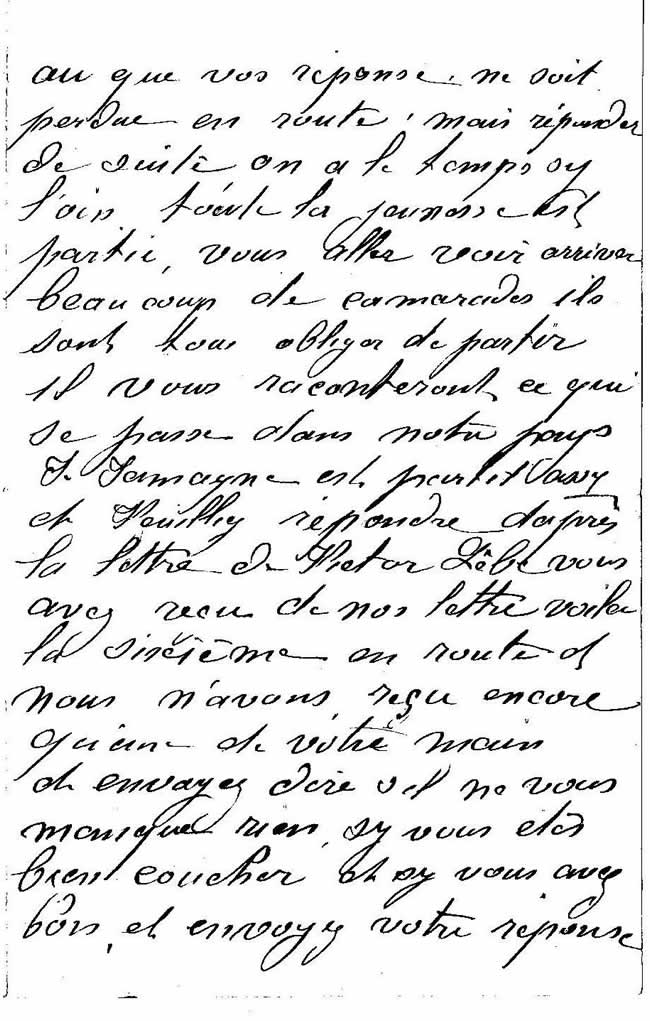 au que vos réponse ne soit
perdue en route, mais réponder
de suite on a le temps sy
loin toute la jeunesse est
partie, vous aller voir arriver
beaucoup de camarades ils
sont tous obliger de partir
il vous raconteront ce qui
se passe dans notre pays
J. Jamagne est partit
et Neuilly répondre d'après
la lettre de Victor vous
avez reçu de nos lettre voila
la sixième en route et
nous n'avons reçu encore
qu'une de votre main
et envoyez dire s'il ne vous
manque rien, sy vous etes
bien coucher et sy vous avez
bons, et envoyez votre réponse